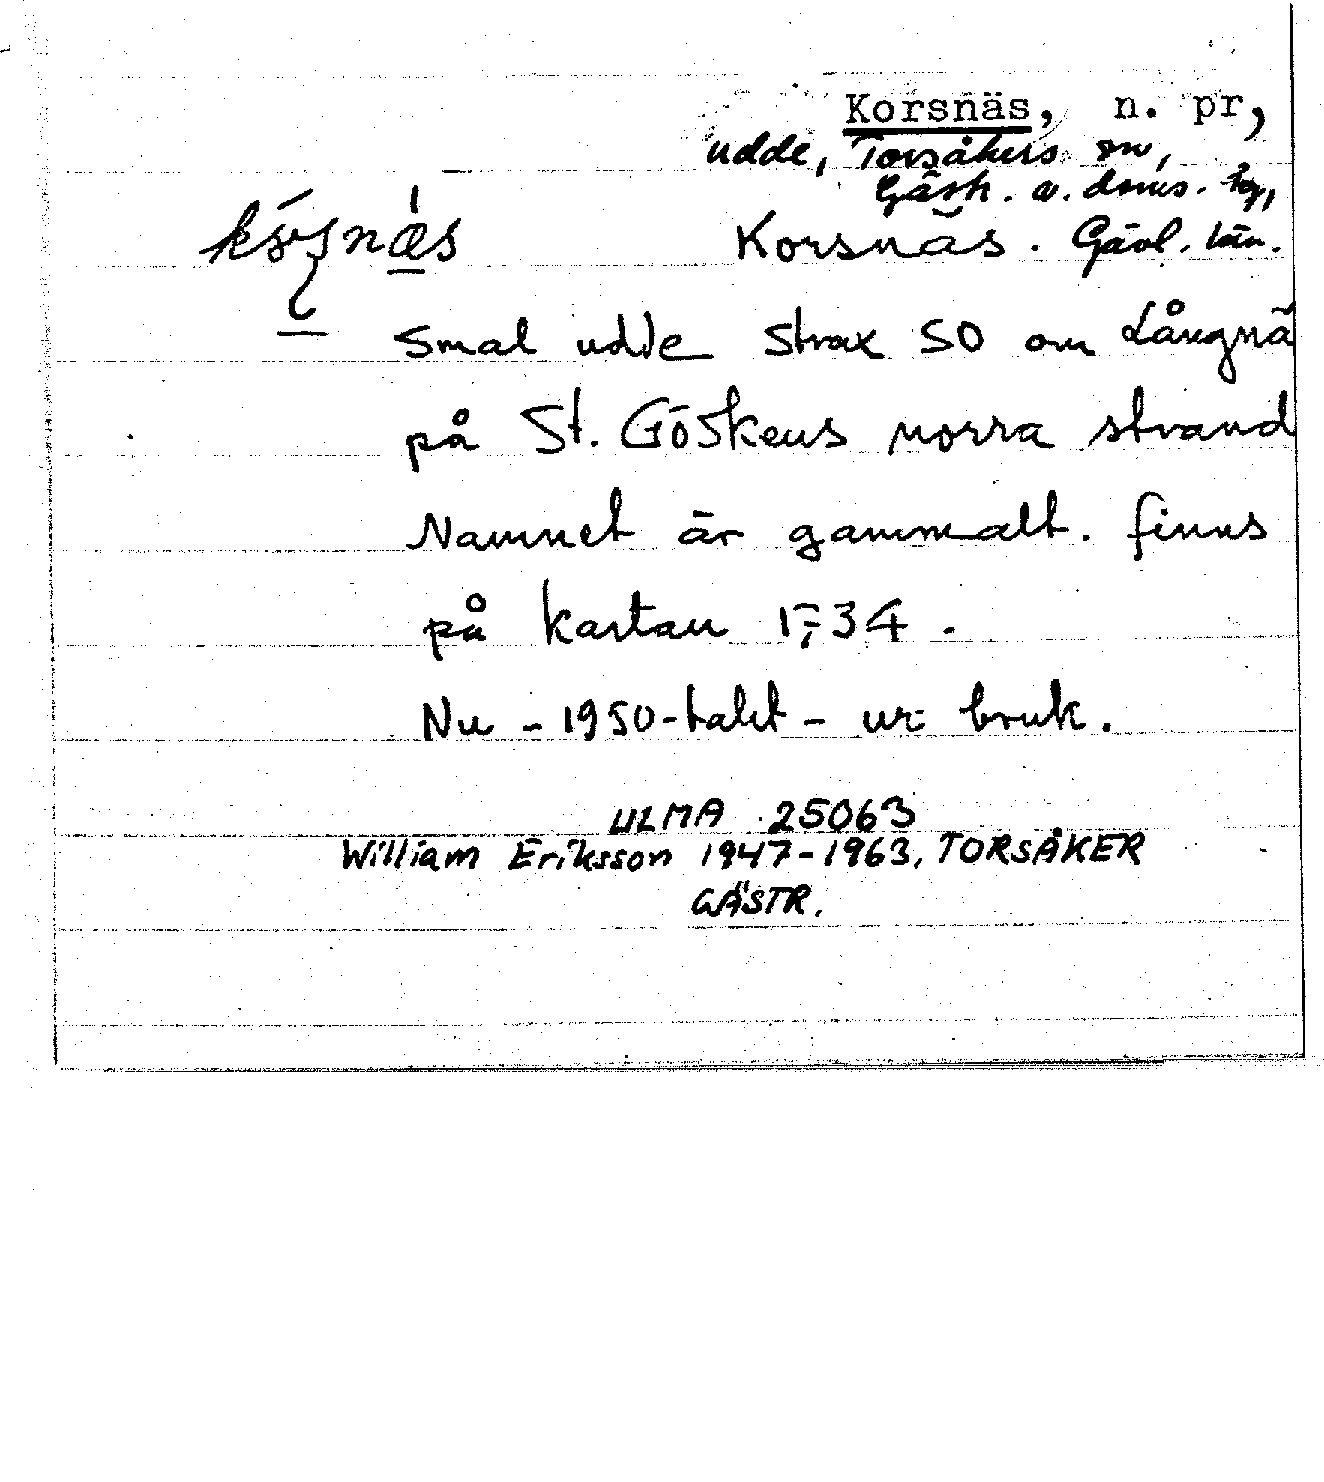 Korsnäs, n. pr,
udde, Torsåkers sn,
Gästr. v. doms. tg,
Korsnäs. Gävl. län.
Smal udde strax SO om Långnä
på St. Göskens norra strand
Namnet är gammalt. finns
på kartan 1734.
Nu - 1950-talet - ur bruk.
ULMA 25063
William Eriksson 1947-1963, TORSÅKER
GÄSTR.